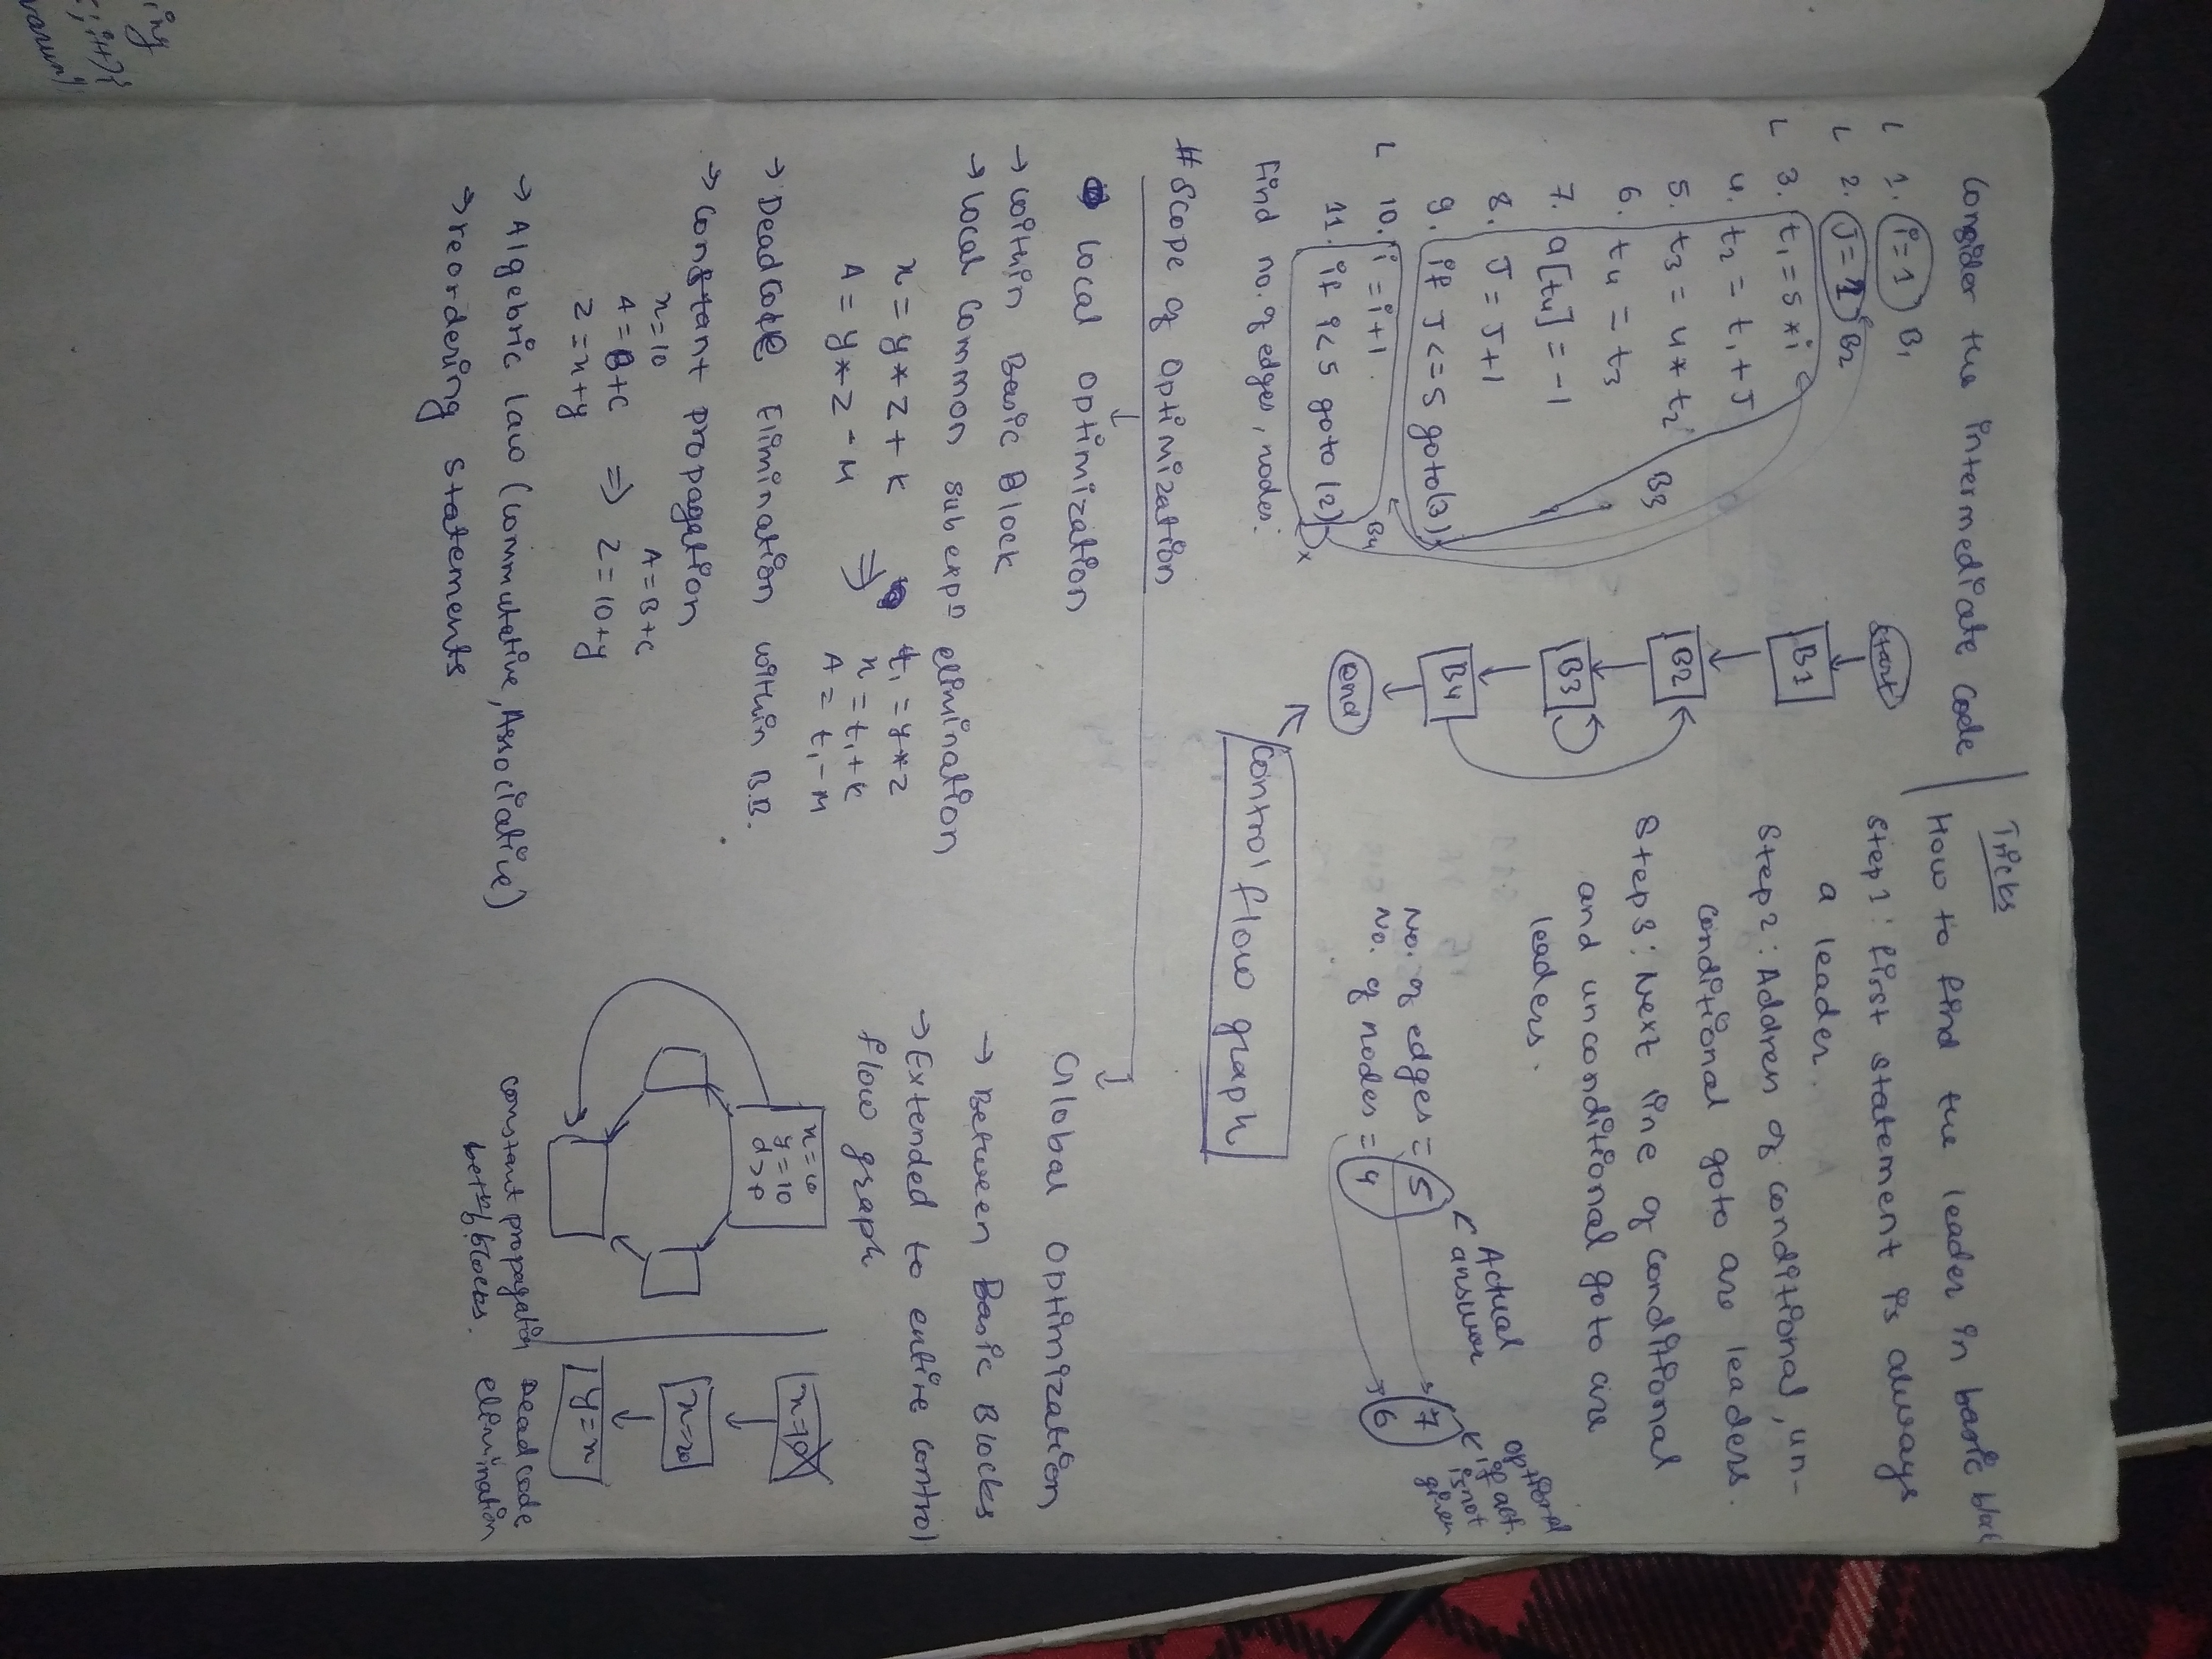 Consider the intermediate code
L 1. i=1 B1
L 2. J=1 B2
L 3. t1=5*i
4. t2 = t1+J
5. t3 = 4*t2
6. t4 = t3
7. a[t4] = -1
8. J = J+1
9. if J<=5 goto(3)
B3
L 10. i=i+1
11. if i<5 goto (2)
B4
x
Find no. of edges, nodes.
Start
B1
B2
B3
B4
end
Control flow graph
Tricks
How to find the leader in basic
Step 1: first statement is always
a leader.
Step 2: Address of conditional, un-
conditional goto are leaders.
Step 3: Next line of conditional
and unconditional goto are
leaders.
No. of edges = 5
No. of nodes = 4
Actual
answer
7
6
optional
is not
given
#Scope of Optimization
Local Optimization
→ Within Basic Block
→ Local Common sub expn elimination
x = y*z+k
A = y*z-M
⇒
t1 = y*z
x = t1+k
A = t1-M
→ Dead Code Elimination within B.B.
→ Constant propagation
x=10
A=B+C
z=x+y
⇒
A=B+C
z=10+y
→ Algebric law (Commutative, Associative)
→ reordering statements
Global Optimization
→ Between Basic Blocks
→ Extended to entire control
flow graph
y=10
d>p
constant propagation
betn blocks.
x=10
x=20
y=x
Dead code
elimination